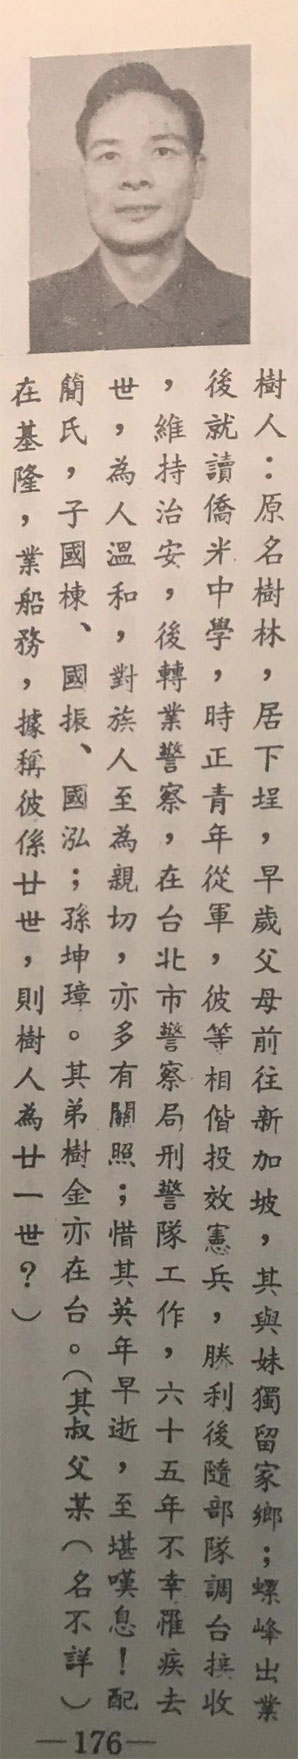 樹人：原名樹林，居下埕，早歲父母前往新加坡，其與妹獨留家鄉；螺峰出業
後就讀僑光中學，時正青年從軍，彼等相偕投效憲兵，勝利後隨部隊調台接收
，維持治安，後轉業警察，在台北市警察局刑警隊工作，六十五年不幸罹疾去
世，為人溫和，對族人至為親切，亦多有關照；惜其英年早逝，至堪嘆息！配
簡氏，子國棟、國振、國泓；孫坤璋。其弟樹金亦在台。（其叔父某（名不詳）
在基隆，業船務，據稱彼係廿世，則樹人為廿一世？）
—176—